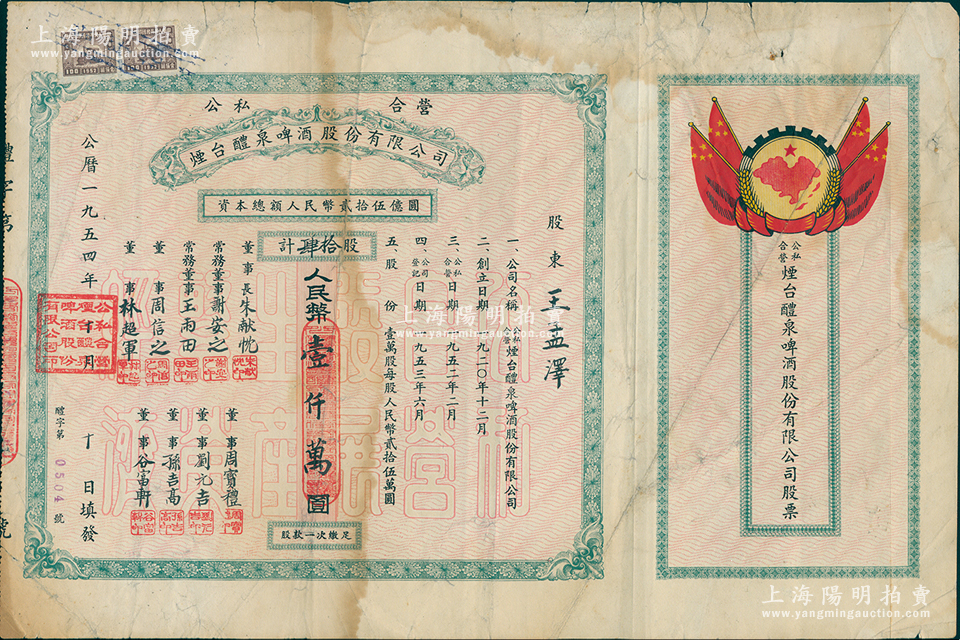 上海陽明拍賣
www.yangmingauction.com
公私合營
煙台醴泉啤酒股份有限公司
資本總額人民幣貳拾伍億圓
計肆拾股
股東 王孟澤
一、公司名稱 公私合營煙台醴泉啤酒股份有限公司
二、創立日期 一九二〇年十二月
三、公私合營日期 一九五二年二月
四、公司登記日期 一九五三年六月
五、股份 壹萬股每股人民幣貳拾伍萬圓
人民幣壹仟萬圓
董事長 朱献忱
常務董事 謝安之
常務董事 王雨田
董事 周信之
董事 林超軍
董事 周寶禮
董事 劉元吉
董事 孫吉高
董事 谷富軒
公曆一九五四年十月十日填發
公私合營
煙台醴泉
啤酒股份
有限公司印
醴字第0504號
股款一次繳足
公私合營煙台醴泉啤酒股份有限公司股票
上海陽明拍賣
www.yangmingauction.com
上海陽明拍賣
www.yangmingauction.com